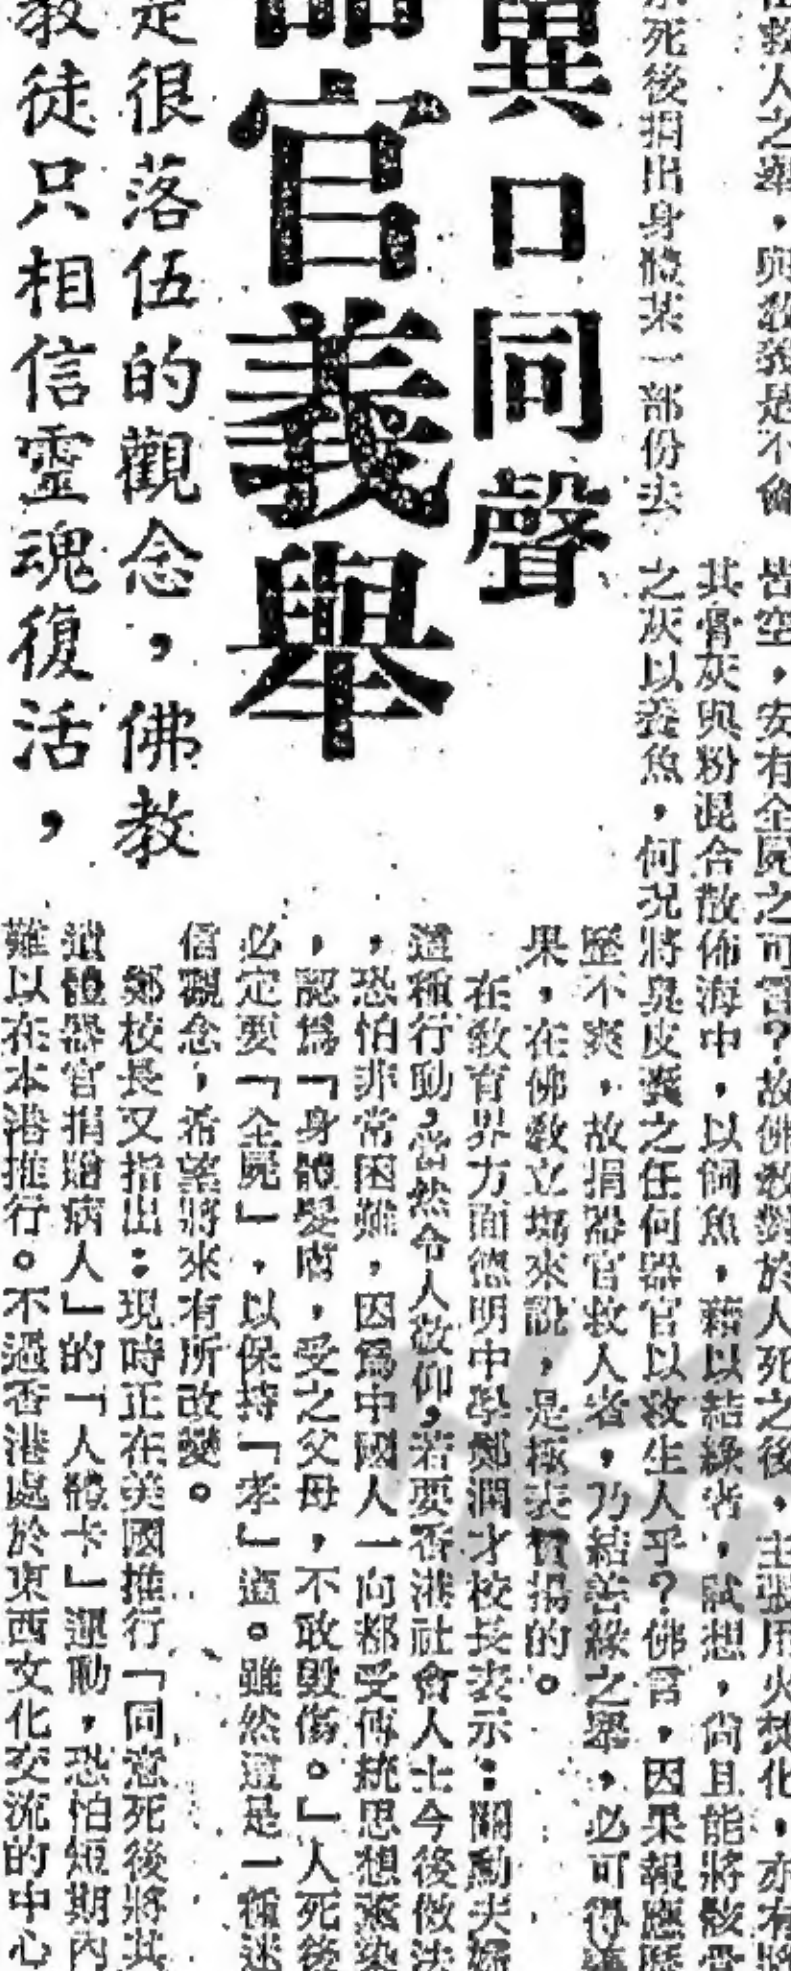 救人之舉，與教義是不會
死後捐出身體某一部份去
皆空，安有全屍之可言？故佛教對於人死之後，主張用火焚化，亦有將
其骨灰與粉混合散佈海中，以飼魚，藉以結緣者，試想，尚且能將骸骨
之灰以養魚，何況將臭皮囊之任何器官以救生人乎？佛言，因果報應歷
歷不爽，故捐器官救人者，乃結善緣之舉，必可得
果，在佛教立場來說，是極表贊揚的。
異口同聲
官義舉
是很落伍的觀念，佛教
教徒只相信靈魂復活，
在教育界方面德明中學鄭潤才校長表示：關勳夫婦
這種行動，當然令人敬仰，若要香港社會人士今後做法
，恐怕非常困難，因爲中國人一向都受傳統思想薰染
，認爲「身體髮膚，受之父母，不敢毀傷。」人死後
必定要「全屍」，以保持「孝」道。雖然這是一種迷
信觀念，希望將來有所改變。
鄭校長又指出：現時正在美國推行「同意死後將其
遺體器官捐贈病人」的「人體卡」運動，恐怕短期內
難以在本港推行。不過香港處於東西文化交流的中心